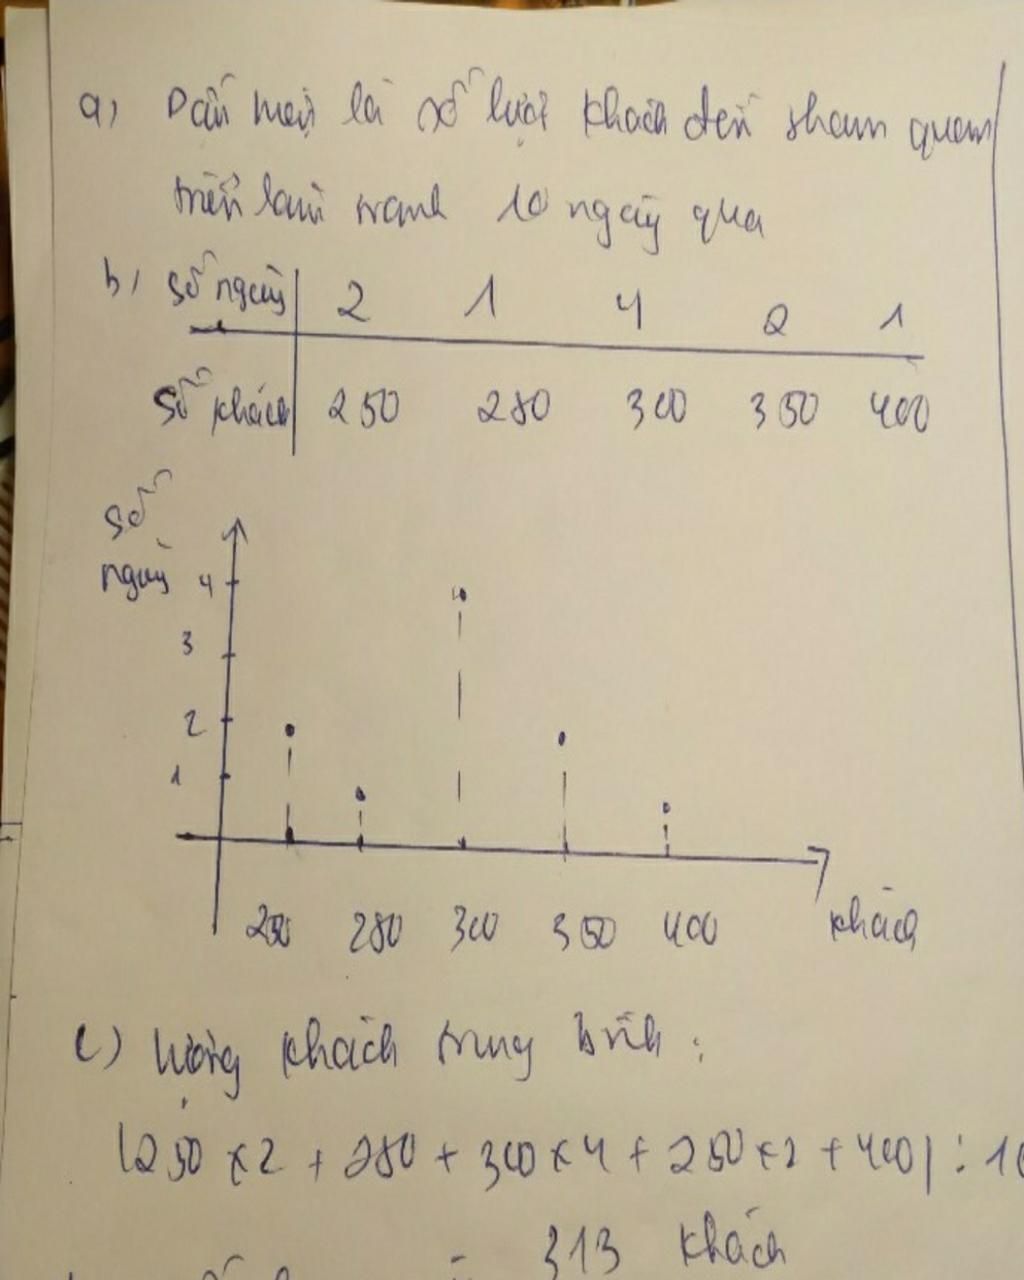 a) Dấu hiệu là số lượt khách đến tham quan
triển lãm tranh 10 ngày qua
b) Số ngày 2 1 4 2 1
Số khách 250 280 300 350 400
Số
ngày 4
3
2
1
250 280 300 350 400 khách
c) lượng khách trung bình:
(250 x 2 + 280 + 300 x 4 + 250 x 2 + 400) : 10
313 khách